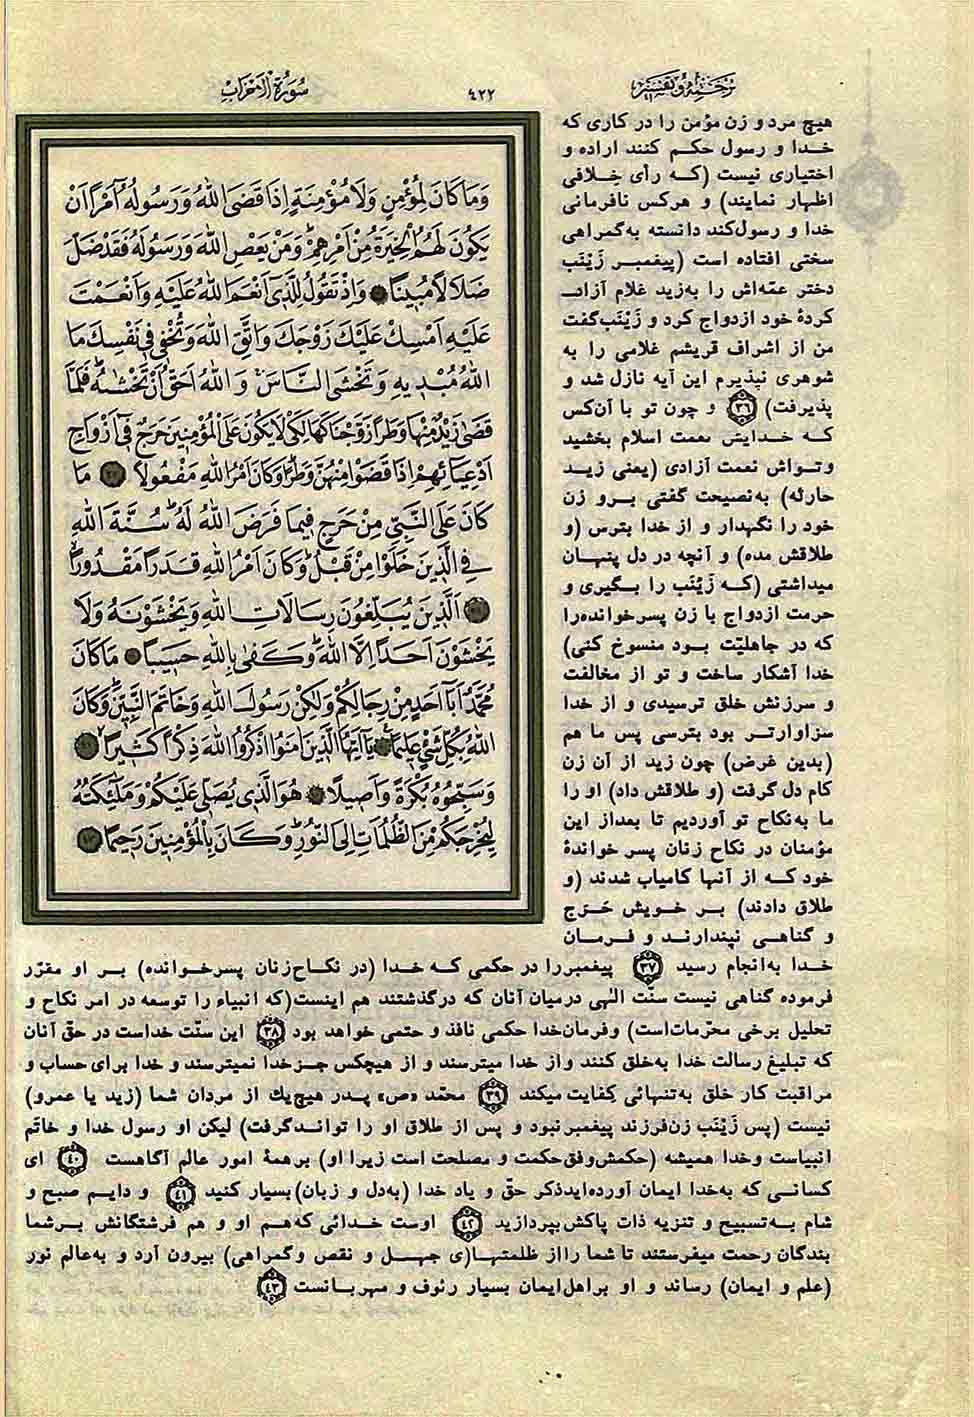 ترجمه و تفسیر
۴۲۲
سُورَةُ الْاَحْزَابِ
وَمَا كَانَ لِمُؤْمِنٍ وَلَا مُؤْمِنَةٍ اِذَا قَضَى اللّٰهُ وَرَسُولُهُ اَمْرًا اَنْ
يَكُونَ لَهُمُ الْخِيَرَةُ مِنْ اَمْرِهِمْ وَمَنْ يَعْصِ اللّٰهَ وَرَسُولَهُ فَقَدْ ضَلَّ
ضَلَالًا مُبِينًا وَاِذْ تَقُولُ لِلَّذِي اَنْعَمَ اللّٰهُ عَلَيْهِ وَاَنْعَمْتَ
عَلَيْهِ اَمْسِكْ عَلَيْكَ زَوْجَكَ وَاتَّقِ اللّٰهَ وَتُخْفِي فِي نَفْسِكَ مَا
اللّٰهُ مُبْدِيهِ وَتَخْشَى النَّاسَ وَاللّٰهُ اَحَقُّ اَنْ تَخْشٰيهُ فَلَمَّا
قَضٰى زَيْدٌ مِنْهَا وَطَرًا زَوَّجْنَاكَهَا لِكَيْ لَا يَكُونَ عَلَى الْمُؤْمِنِينَ حَرَجٌ فِي اَزْوَاجِ
اَدْعِيَائِهِمْ اِذَا قَضَوْا مِنْهُنَّ وَطَرًا وَكَانَ اَمْرُ اللّٰهِ مَفْعُولًا مَا
كَانَ عَلَى النَّبِيِّ مِنْ حَرَجٍ فِيمَا فَرَضَ اللّٰهُ لَهُ سُنَّةَ اللّٰهِ
فِي الَّذِينَ خَلَوْا مِنْ قَبْلُ وَكَانَ اَمْرُ اللّٰهِ قَدَرًا مَقْدُورًا
اَلَّذِينَ يُبَلِّغُونَ رِسَالَاتِ اللّٰهِ وَيَخْشَوْنَهُ وَلَا
يَخْشَوْنَ اَحَدًا اِلَّا اللّٰهَ وَكَفٰى بِاللّٰهِ حَسِيبًا مَا كَانَ
مُحَمَّدٌ اَبَا اَحَدٍ مِنْ رِجَالِكُمْ وَلٰكِنْ رَسُولَ اللّٰهِ وَخَاتَمَ النَّبِيِّنَ وَكَانَ
اللّٰهُ بِكُلِّ شَيْءٍ عَلِيمًا يَا اَيُّهَا الَّذِينَ اٰمَنُوا اذْكُرُوا اللّٰهَ ذِكْرًا كَثِيرًا
وَسَبِّحُوهُ بُكْرَةً وَاَصِيلًا هُوَ الَّذِي يُصَلِّي عَلَيْكُمْ وَمَلٰئِكَتُهُ
لِيُخْرِجَكُمْ مِنَ الظُّلُمَاتِ اِلَى النُّورِ وَكَانَ بِالْمُؤْمِنِينَ رَحِيمًا
هیچ مرد و زن مؤمن را در کاری که
خدا و رسول حکم کنند اراده و
اختیاری نیست (که رأی خلافی
اظهار نمایند) و هرکس نافرمانی
خدا و رسول‌کند دانسته به‌گمراهی
سختی افتاده است (پیغمبر زَیْنَب
دختر عمّه‌اش را به‌زید غلام آزاد
کردهٔ خود ازدواج کرد و زَیْنَب‌گفت
من از اشراف قریشم غلامی را به
شوهری نپذیرم این آیه نازل شد و
پذیرفت) ۳۶ و چون تو با آن‌کس
که خدایش نعمت اسلام بخشید
وتواش نعمت آزادی (یعنی زید
حارثه) به‌نصیحت گفتی برو زن
خود را نگهدار و از خدا بترس (و
طلاقش مده) و آنچه در دل پنهان
میداشتی (که زَیْنَب را بگیری و
حرمت ازدواج با زن پسرخوانده‌را
که در جاهلیّت بود منسوخ کنی)
خدا آشکار ساخت و تو از مخالفت
و سرزنش خلق ترسیدی و از خدا
سزاوارتر بود بترسی پس ما هم
(بدین غرض) چون زید از آن زن
کام دل گرفت (و طلاقش داد) او را
ما به‌نکاح تو آوردیم تا بعداز این
مؤمنان در نکاح زنان پسر خواندهٔ
خود که از آنها کامیاب شدند (و
طلاق دادند) بر خویش حَرَج
و گناهی نپندارند و فرمان
خدا به‌انجام رسید ۳۷ پیغمبررا در حکمی که خدا (در نکاح‌زنان پسرخوانده) بر او مقرّر
فرموده گناهی نیست سنّت الٰهی درمیان آنان که درگذشتند هم اینست(که انبیاء را توسعه در امر نکاح و
تحلیل برخی محرّمات‌است) وفرمان‌خدا حکمی نافذ و حتمی خواهد بود ۳۸ این سنّت خداست در حقّ آنان
که تبلیغ رسالت خدا به‌خلق کنند واز خدا میترسند و از هیچکس جزخدا نمیترسند و خدا برای حساب و
مراقبت کار خلق به‌تنهائی کفایت میکند ۳۹ محمّد «ص» پدر هیچ‌یك از مردان شما (زید یا عمرو)
نیست (پس زَیْنَب زن‌فرزند پیغمبرنبود و پس از طلاق او را تواندگرفت) لیکن او رسول خدا و خاتم
انبیاست وخدا همیشه (حکمش‌وفق‌حکمت و مصلحت است زیرا او) برهمهٔ امور عالم آگاهست ۴۰ ای
کسانی که به‌خدا ایمان آورده‌ایدذکر حقّ و یاد خدا (به‌دل و زبان)بسیار کنید ۴۱ و دایم صبح و
شام به‌تسبیح و تنزیه ذات پاکش‌بپردازید ۴۲ اوست خدائی که‌هم او و هم فرشتگانش برشما
بندگان رحمت میفرستند تا شما رااز ظلمتها(ی جهل و نقص وگمراهی) بیرون آرد و به‌عالم نور
(علم و ایمان) رساند و او براهل‌ایمان بسیار رئوف و مهربانست ۴۳